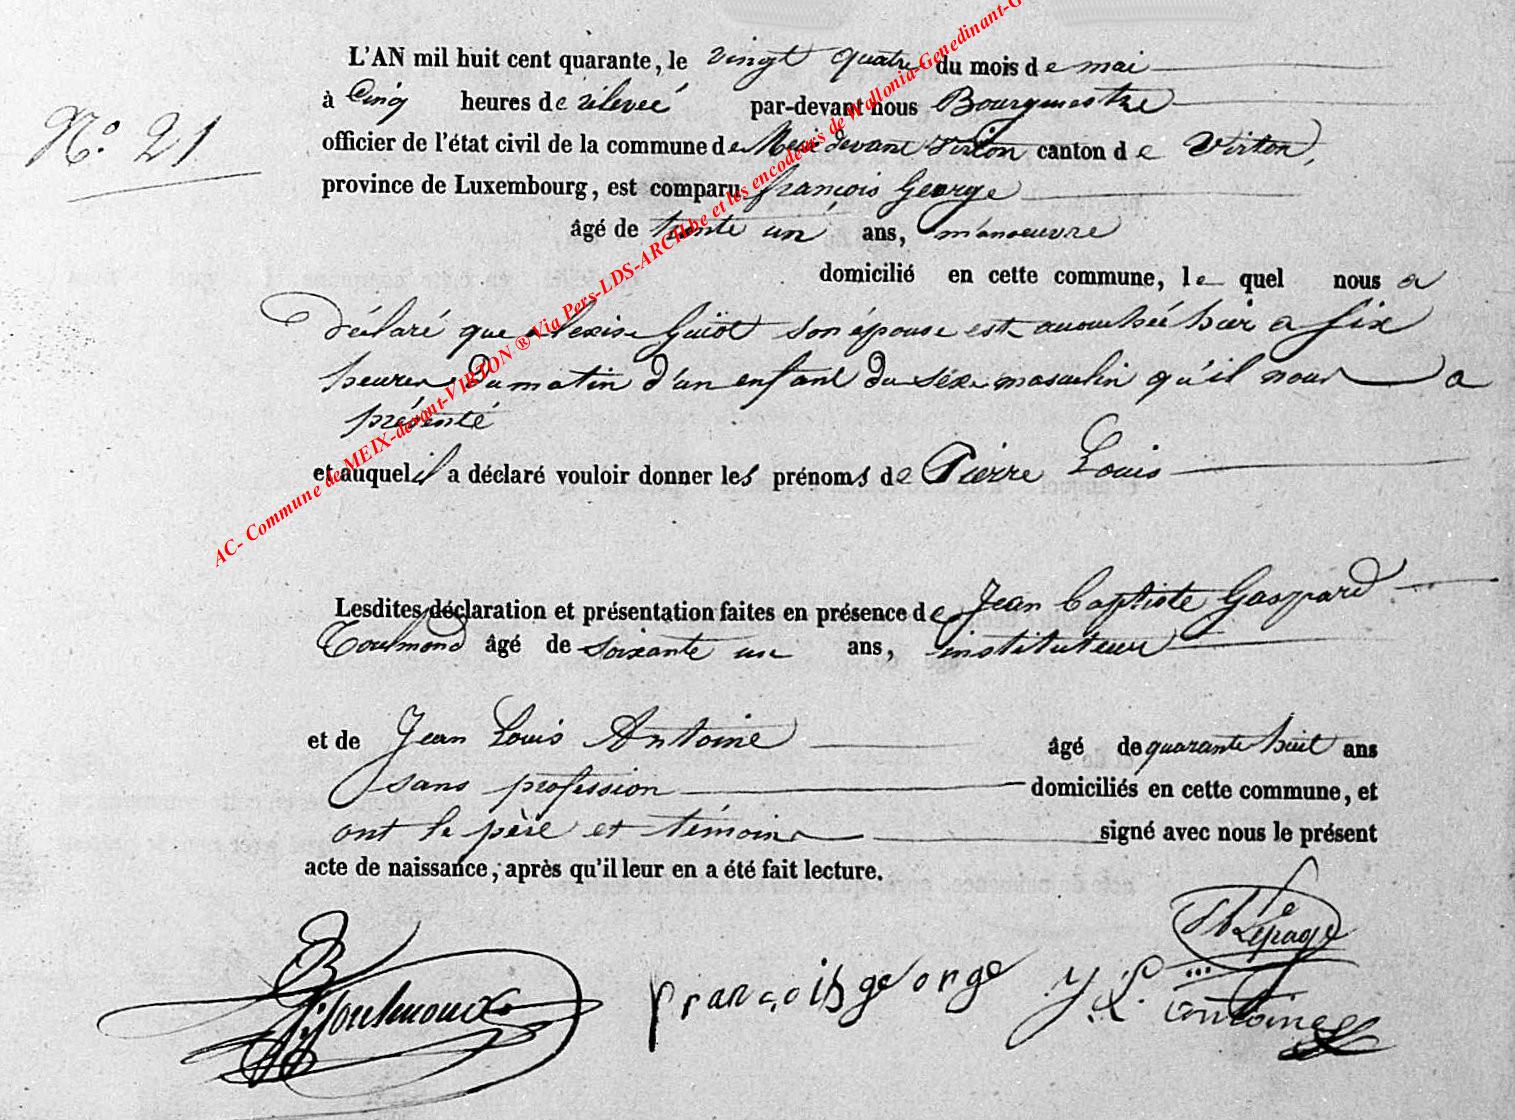 L'AN mil huit cent quarante, le vingt quatre du mois de mai
à Cinq heures de rélevée par-devant nous Bourgmestre
N.º 21
officier de l'état civil de la commune de Meix devant Virton canton de Virton,
province de Luxembourg, est comparu françois George
âgé de trente un ans, manoeuvre
domicilié en cette commune, lequel nous a
déclaré que alexise Guiot son épouse est accouchée hier a six
heures du matin d'un enfant du séxe masculin qu'il nous a
présenté
et auquel il a déclaré vouloir donner les prénoms de Pierre Louis
Lesdites déclaration et présentation faites en présence de Jean baptiste Gaspard
Toulmond âgé de soixante un ans, instituteur
et de Jean Louis Antoine âgé de quarante huit ans
sans profession domiciliés en cette commune, et
ont le père et témoins signé avec nous le présent
acte de naissance, après qu'il leur en a été fait lecture.
Lepage
françois george J. L. antoine
AC- Commune de MEIX-devant-VIRTON ® Via Pers-LDS-ARCH.be et les encodeurs de Wallonia-Genedinant-G